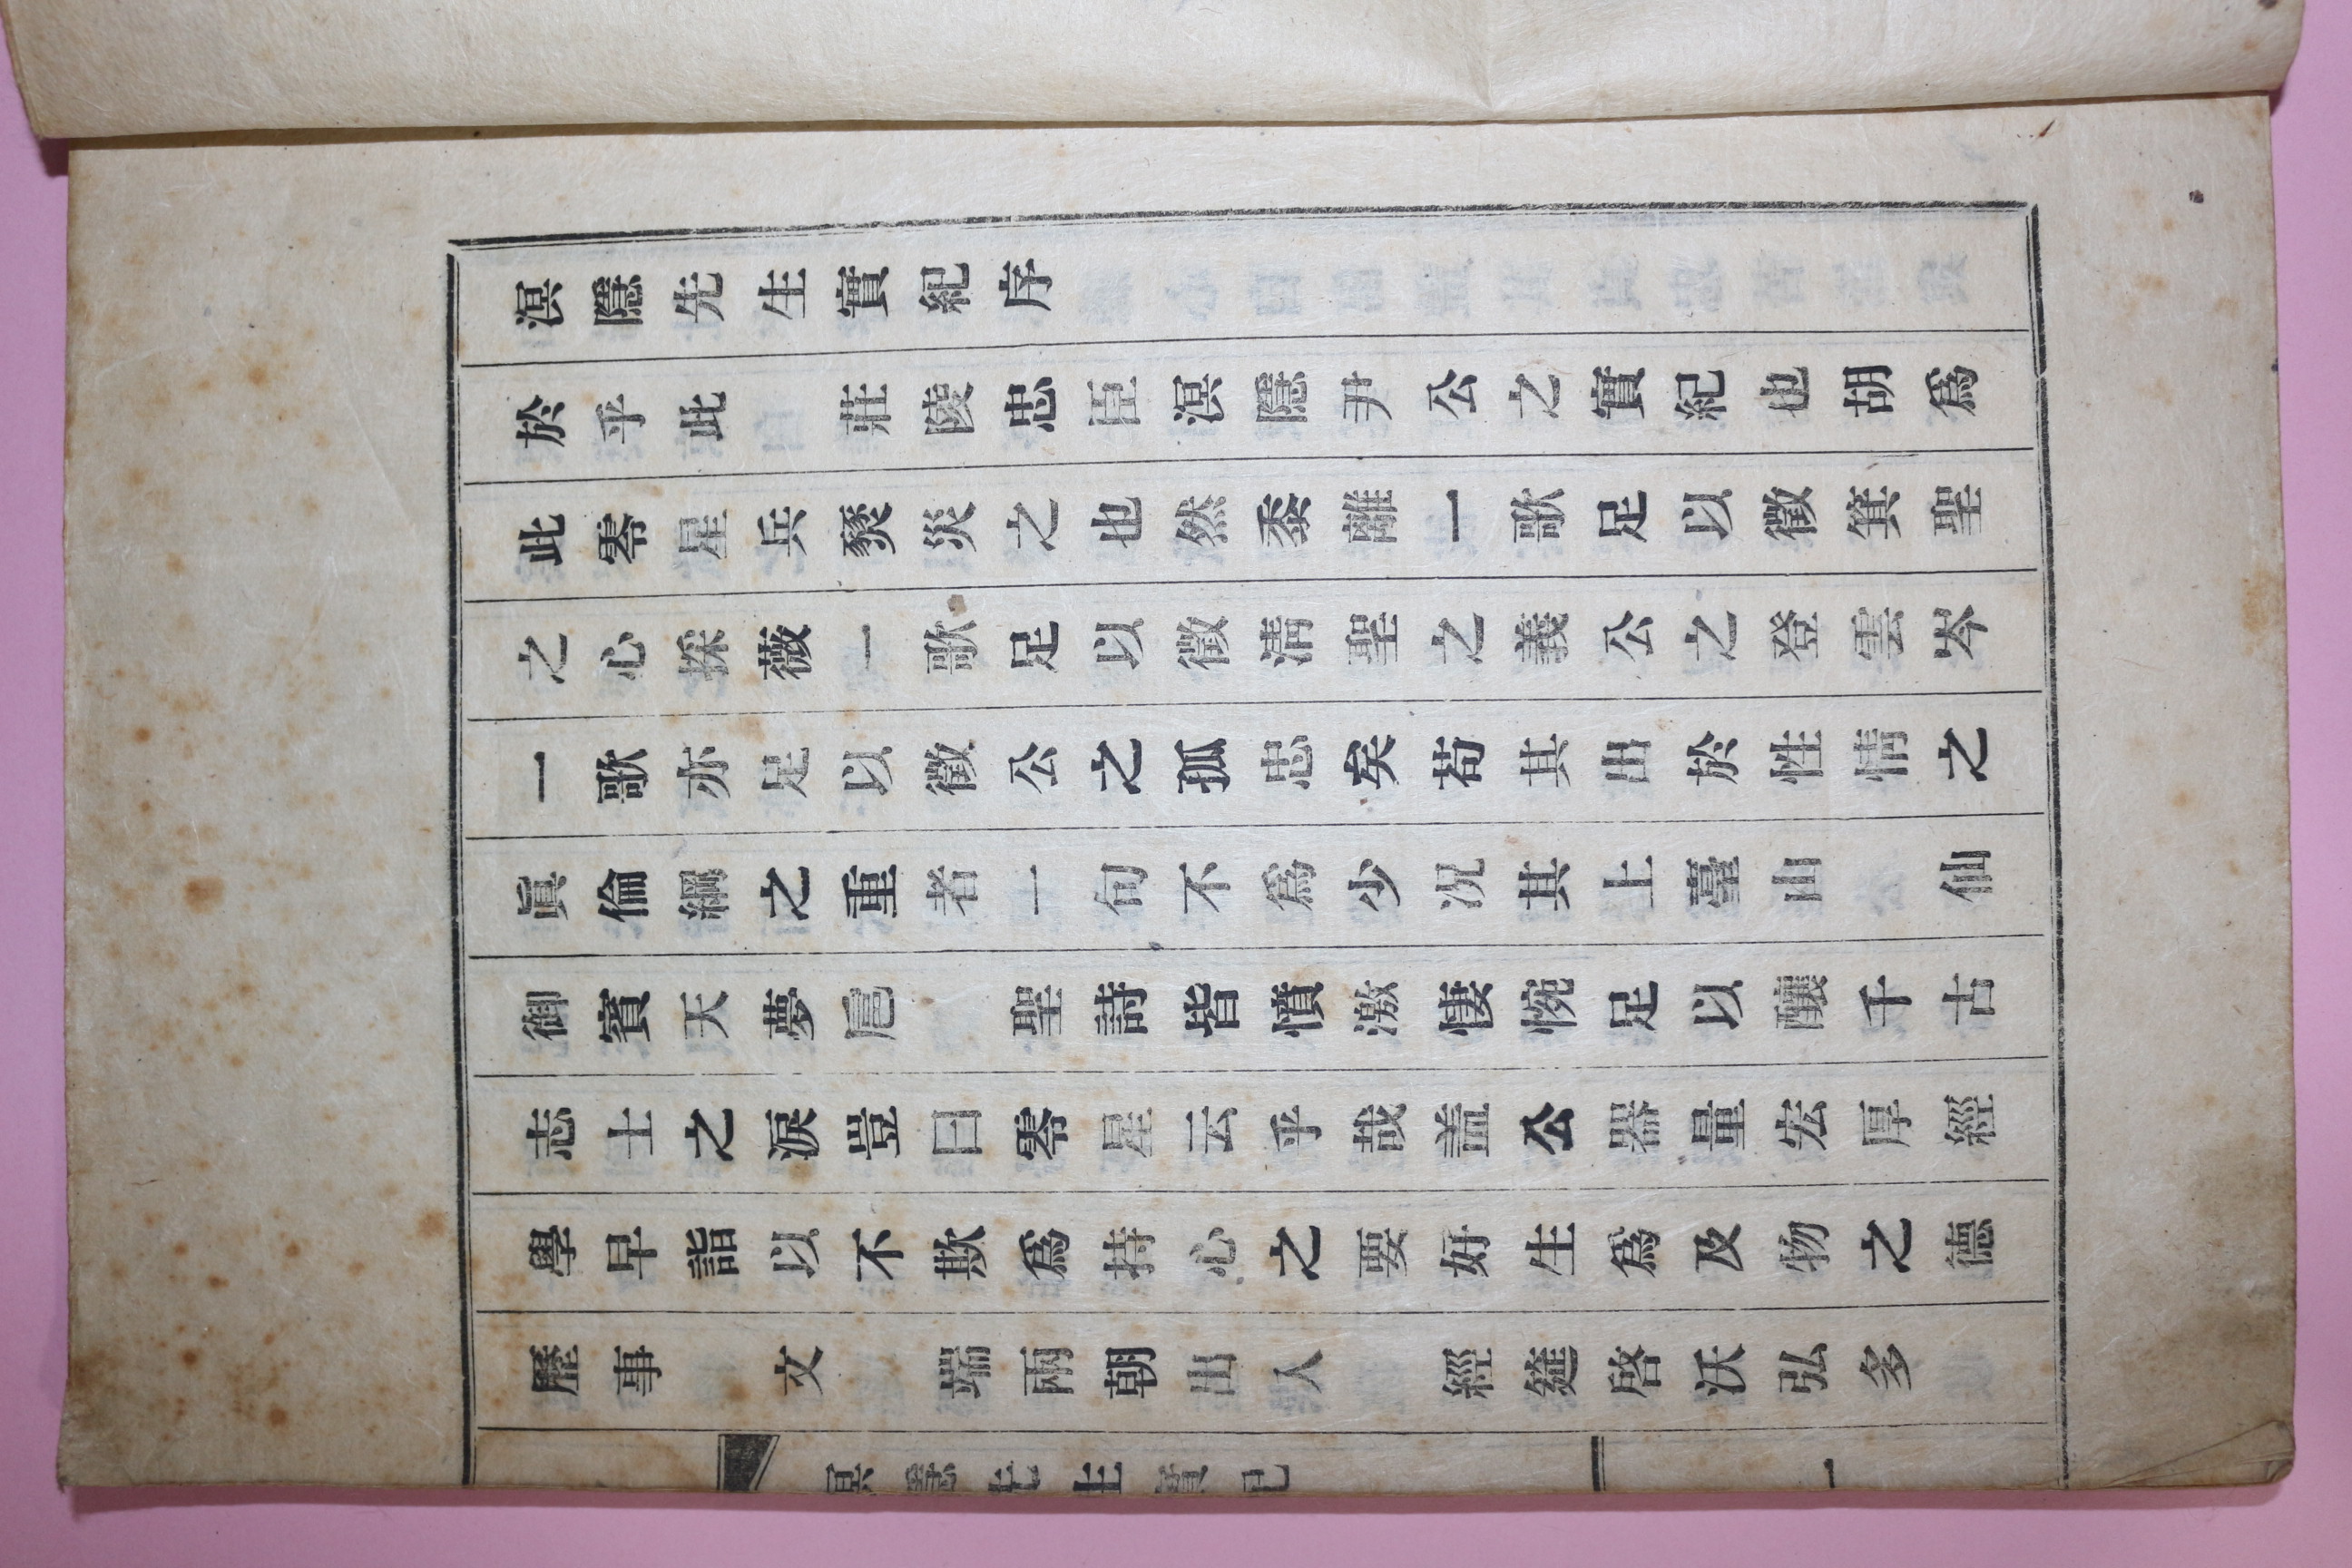 溟隱先生實紀序
於乎此 莊陵忠臣溟隱尹公之實紀也胡爲
此零星兵燹災之也然黍離一歌足以徵箕聖
之心採薇一歌足以徵淸聖之義公之登雲岑
一歌亦足以徵公之孤忠矣苟其出於性情之
眞倫綱之重者一句不爲少况其上臺山 仙
御賓天夢扈 聖詩皆憤激悽惋足以釀千古
志士之淚豈曰零星云乎哉盖公器量宏厚經
學早詣以不欺爲持心之要好生爲及物之德
歷事 文 端兩朝出入 經筵啓沃弘多
溟隱先生實紀
一